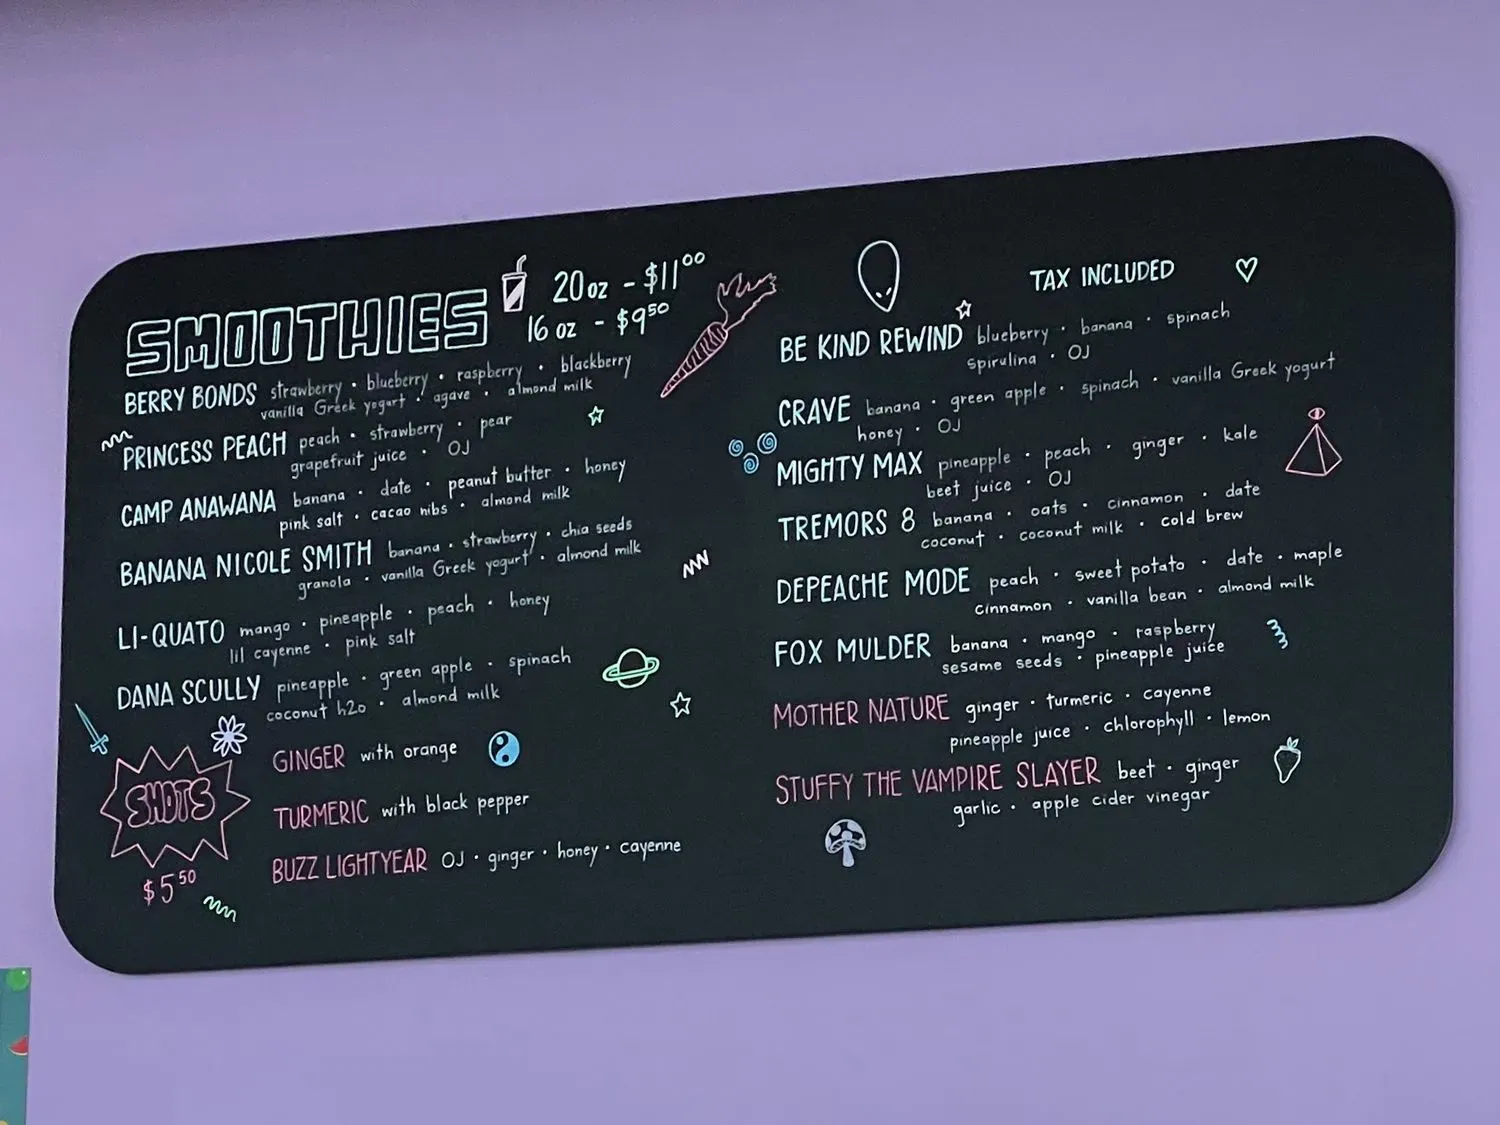 SMOOTHIES
20 oz - $11.00
16 oz - $9.50
BERRY BONDS strawberry • blueberry • raspberry • blackberry
vanilla Greek yogurt • agave • almond milk
PRINCESS PEACH peach • strawberry • pear
grapefruit juice • OJ
CAMP ANAWANA banana • date • peanut butter • honey
pink salt • cacao nibs • almond milk
BANANA NICOLE SMITH banana • strawberry • chia seeds
granola • vanilla Greek yogurt • almond milk
LI-QUATO mango • pineapple • peach • honey
lil cayenne • pink salt
DANA SCULLY pineapple • green apple • spinach
coconut h2o • almond milk
SHOTS
$5.50
GINGER with orange
TURMERIC with black pepper
BUZZ LIGHTYEAR OJ • ginger • honey • cayenne
TAX INCLUDED
BE KIND REWIND blueberry • banana • spinach
spirulina • OJ
CRAVE banana • green apple • spinach • vanilla Greek yogurt
honey • OJ
MIGHTY MAX pineapple • peach • ginger • kale
beet juice • OJ
TREMORS 8 banana • oats • cinnamon • date
coconut • coconut milk • cold brew
DEPEACHE MODE peach • sweet potato • date • maple
cinnamon • vanilla bean • almond milk
FOX MULDER banana • mango • raspberry
sesame seeds • pineapple juice
MOTHER NATURE ginger • turmeric • cayenne
pineapple juice • chlorophyll • lemon
STUFFY THE VAMPIRE SLAYER beet • ginger
garlic • apple cider vinegar